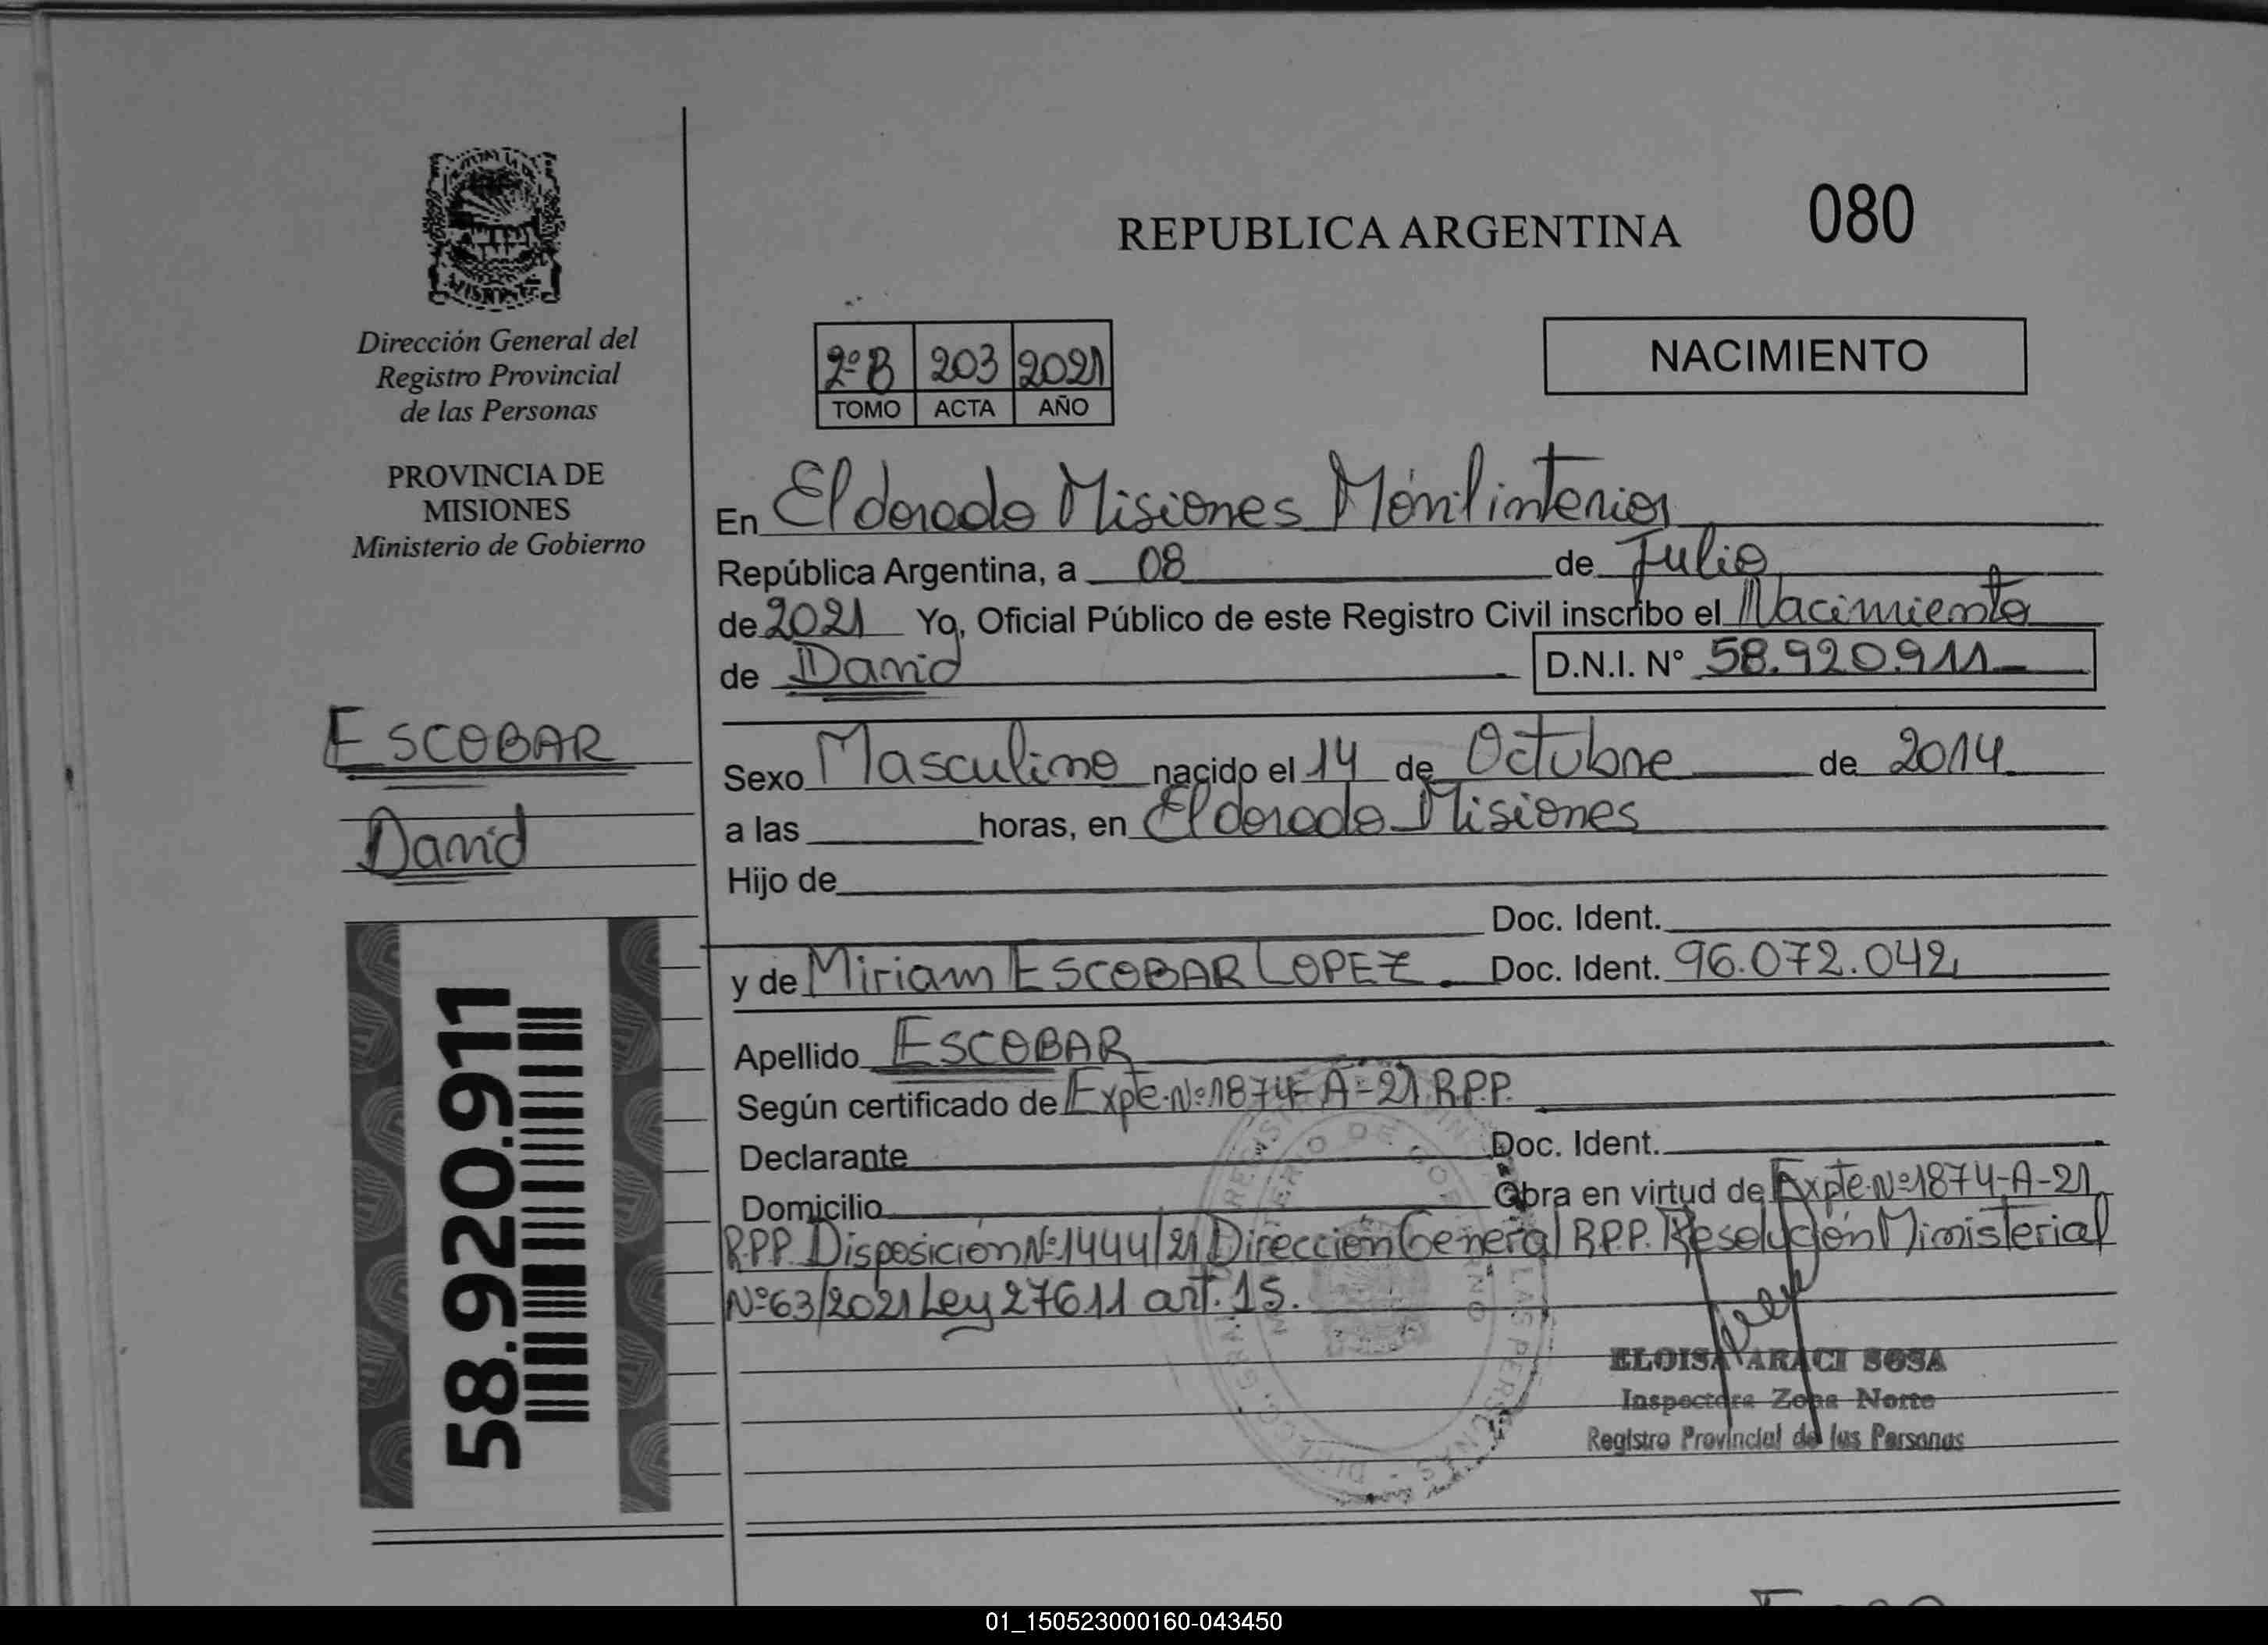 REPUBLICA ARGENTINA 080
Dirección General del
Registro Provincial
de las Personas
PROVINCIA DE
MISIONES
Ministerio de Gobierno
2º B 203 2021
TOMO ACTA AÑO
NACIMIENTO
En Eldorado Misiones Móvil interior
República Argentina, a 08 de Julio
de 2021 Yo, Oficial Público de este Registro Civil inscribo el Nacimiento
de David D.N.I. N° 58.920.911
ESCOBAR
David
58.920.911
Sexo Masculino nacido el 14 de Octubre de 2014
a las horas, en Eldorado Misiones
Hijo de
Doc. Ident.
y de Miriam ESCOBAR LOPEZ. Doc. Ident. 96.072.042
Apellido ESCOBAR
Según certificado de Expte. Nº 1874-A-21 R.P.P.
Declarante Doc. Ident.
Domicilio Obra en virtud de Expte. Nº 1874-A-21
R.P.P. Disposición Nº 1444/21 Dirección General R.P.P. Resolución Ministerial
Nº 63/2021 Ley 27611 art. 15.
ELOISA ARACI SOSA
Inspectora Zona Norte
Registro Provincial de las Personas
01_150523000160-043450